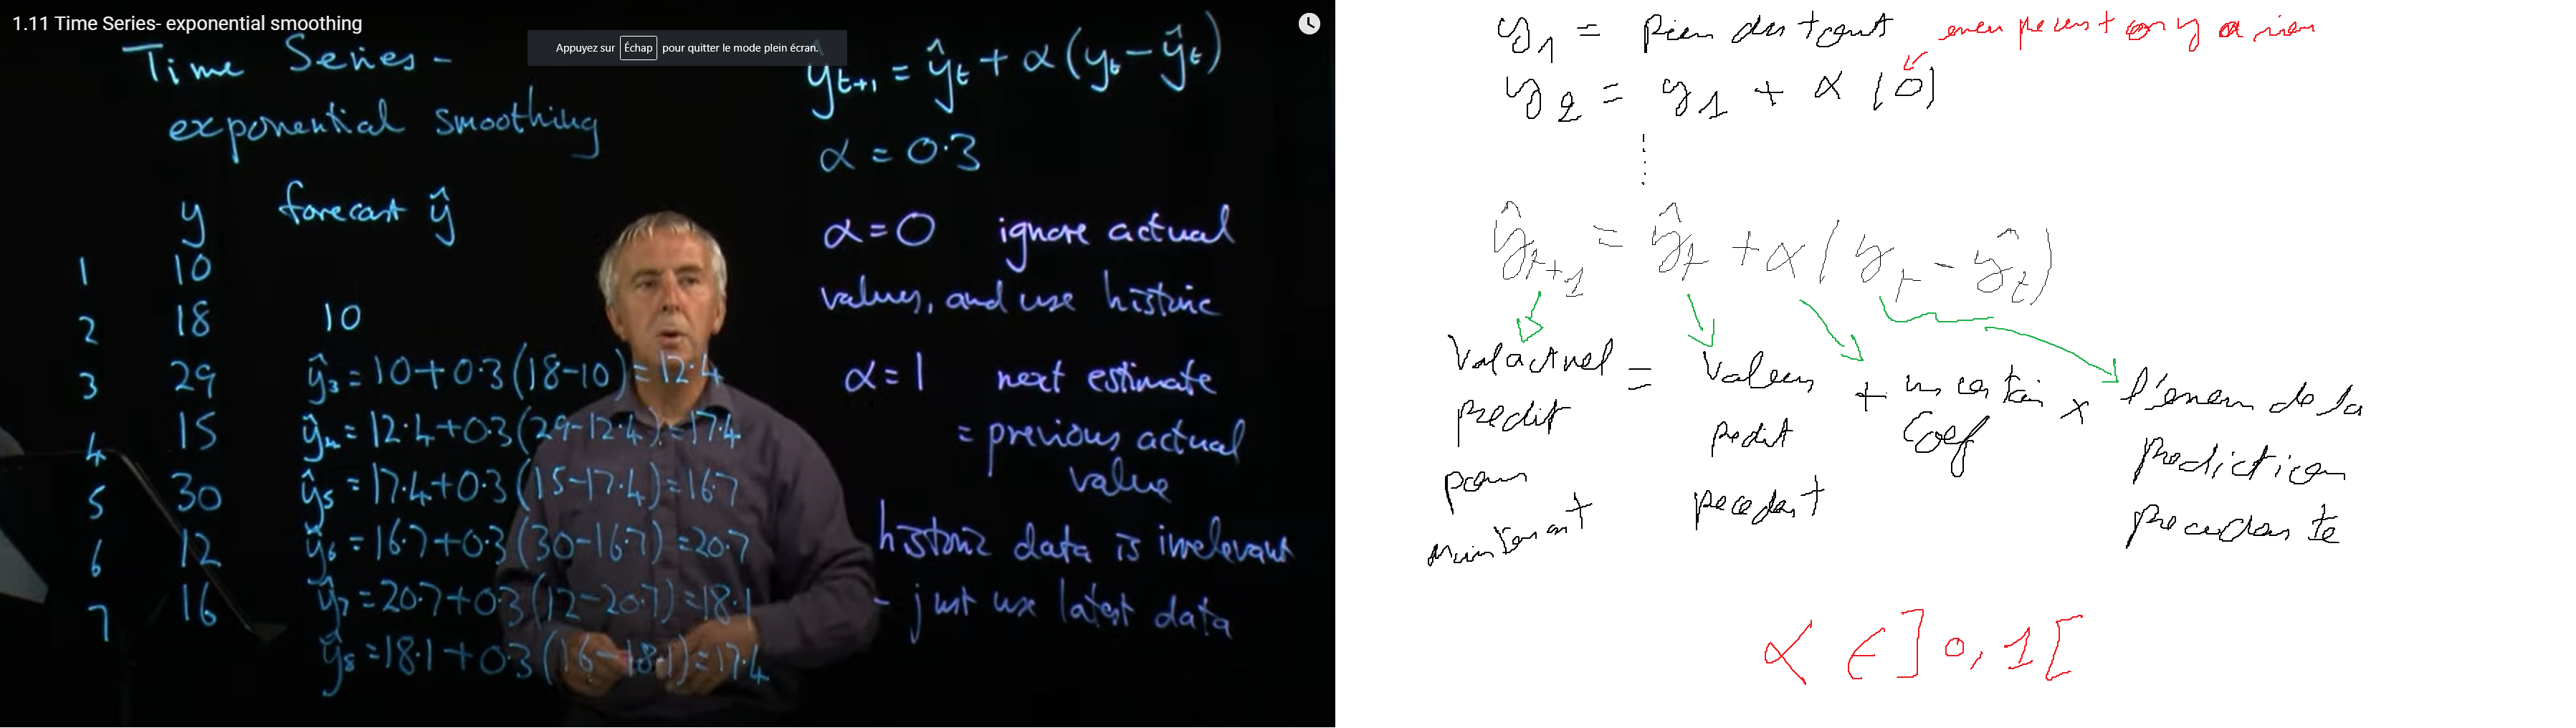 1.11 Time Series- exponential smoothing
Appuyez sur Échap pour quitter le mode plein écran.
Time Series -
exponential smoothing
y forecast ŷ
1 10
2 18 10
3 29 ŷ₃ = 10+0.3(18-10) = 12.4
4 15 ŷ₄ = 12.4+0.3(29-12.4) = 17.4
5 30 ŷ₅ = 17.4+0.3(15-17.4) = 16.7
6 12 ŷ₆ = 16.7+0.3(30-16.7) = 20.7
7 16 ŷ₇ = 20.7+0.3(12-20.7) = 18.1
ŷ₈ = 18.1+0.3(16-18.1) = 17.4
ŷₜ₊₁ = ŷₜ + α(yₜ - ŷₜ)
α = 0.3
α = 0 ignore actual
values, and use historic
α = 1 next estimate
= previous actual
value
historic data is irrelevant
- just use latest data
y₁ = rien du tout
y₂ = y₁ + α (0)
ŷₜ₊₁ = ŷₜ + α(yₜ - ŷₜ)
Val actuel = valeur + un certain × l'erreur de la
predit predit Coef prediction
pour precedant precedante
maintenant
α ∈ ]0,1[